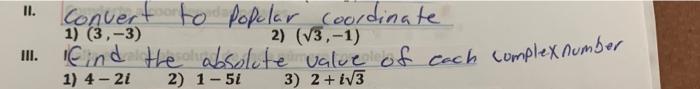 II. Convert to Popular coordinate
1) (3,-3) 2) (√3,-1)
III. Find the absolute value of each complex number
1) 4 – 2i 2) 1 – 5i 3) 2 + i√3